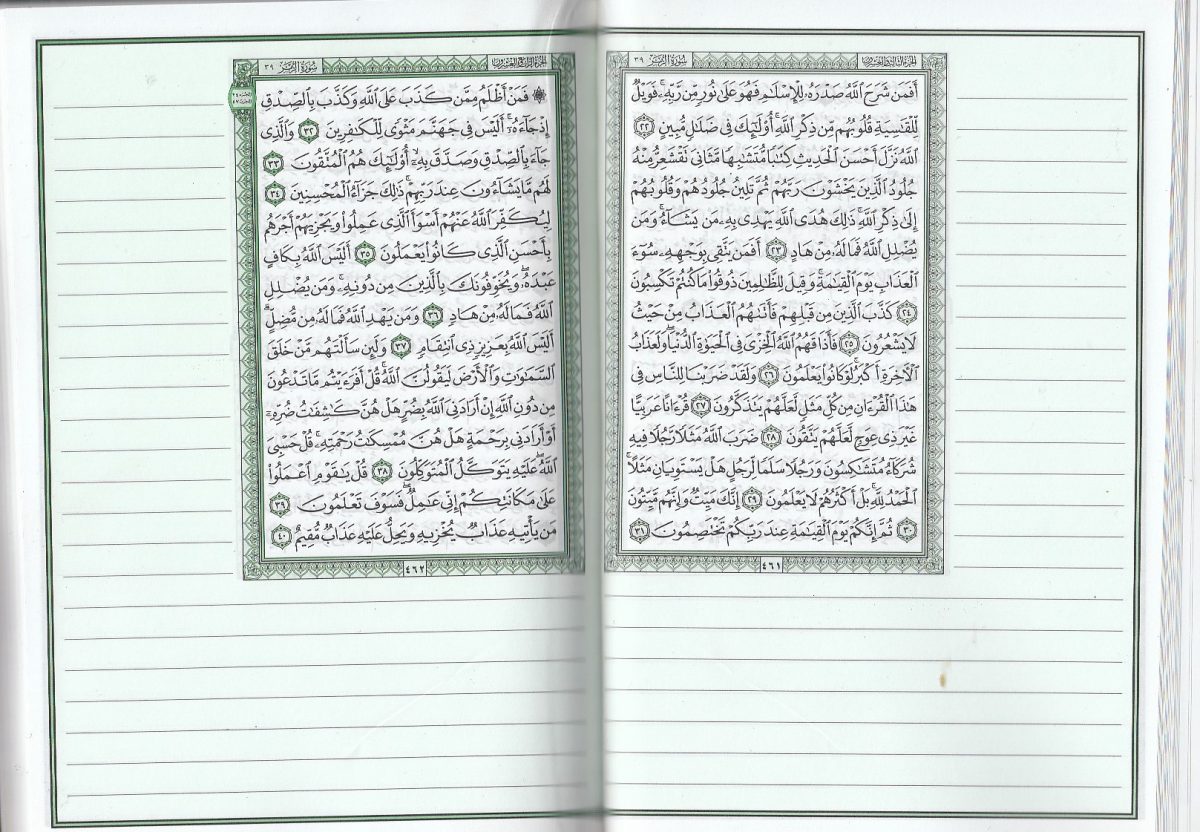 سورة الزمر ٣٩
الجزء الثالث والعشرون
أَفَمَن شَرَحَ اللَّهُ صَدْرَهُ لِلْإِسْلَامِ فَهُوَ عَلَىٰ نُورٍ مِّن رَّبِّهِ فَوَيْلٌ
لِّلْقَاسِيَةِ قُلُوبُهُم مِّن ذِكْرِ اللَّهِ أُولَٰئِكَ فِي ضَلَالٍ مُّبِينٍ ٢٢
اللَّهُ نَزَّلَ أَحْسَنَ الْحَدِيثِ كِتَابًا مُّتَشَابِهًا مَّثَانِيَ تَقْشَعِرُّ مِنْهُ
جُلُودُ الَّذِينَ يَخْشَوْنَ رَبَّهُمْ ثُمَّ تَلِينُ جُلُودُهُمْ وَقُلُوبُهُمْ
إِلَىٰ ذِكْرِ اللَّهِ ذَٰلِكَ هُدَى اللَّهِ يَهْدِي بِهِ مَن يَشَاءُ وَمَن
يُضْلِلِ اللَّهُ فَمَا لَهُ مِنْ هَادٍ ٢٣ أَفَمَن يَتَّقِي بِوَجْهِهِ سُوءَ
الْعَذَابِ يَوْمَ الْقِيَامَةِ وَقِيلَ لِلظَّالِمِينَ ذُوقُوا مَا كُنتُمْ تَكْسِبُونَ
٢٤ كَذَّبَ الَّذِينَ مِن قَبْلِهِمْ فَأَتَاهُمُ الْعَذَابُ مِنْ حَيْثُ
لَا يَشْعُرُونَ ٢٥ فَأَذَاقَهُمُ اللَّهُ الْخِزْيَ فِي الْحَيَاةِ الدُّنْيَا وَلَعَذَابُ
الْآخِرَةِ أَكْبَرُ لَوْ كَانُوا يَعْلَمُونَ ٢٦ وَلَقَدْ ضَرَبْنَا لِلنَّاسِ فِي
هَٰذَا الْقُرْآنِ مِن كُلِّ مَثَلٍ لَّعَلَّهُمْ يَتَذَكَّرُونَ ٢٧ قُرْآنًا عَرَبِيًّا
غَيْرَ ذِي عِوَجٍ لَّعَلَّهُمْ يَتَّقُونَ ٢٨ ضَرَبَ اللَّهُ مَثَلًا رَّجُلًا فِيهِ
شُرَكَاءُ مُتَشَاكِسُونَ وَرَجُلًا سَلَمًا لِّرَجُلٍ هَلْ يَسْتَوِيَانِ مَثَلًا
الْحَمْدُ لِلَّهِ بَلْ أَكْثَرُهُمْ لَا يَعْلَمُونَ ٢٩ إِنَّكَ مَيِّتٌ وَإِنَّهُم مَّيِّتُونَ
٣٠ ثُمَّ إِنَّكُمْ يَوْمَ الْقِيَامَةِ عِندَ رَبِّكُمْ تَخْتَصِمُونَ ٣١
٤٦١
سورة الزمر ٣٩
الجزء الرابع والعشرون
فَمَنْ أَظْلَمُ مِمَّن كَذَبَ عَلَى اللَّهِ وَكَذَّبَ بِالصِّدْقِ
إِذْ جَاءَهُ أَلَيْسَ فِي جَهَنَّمَ مَثْوًى لِّلْكَافِرِينَ ٣٢ وَالَّذِي
جَاءَ بِالصِّدْقِ وَصَدَّقَ بِهِ أُولَٰئِكَ هُمُ الْمُتَّقُونَ ٣٣
لَهُم مَّا يَشَاءُونَ عِندَ رَبِّهِمْ ذَٰلِكَ جَزَاءُ الْمُحْسِنِينَ ٣٤
لِيُكَفِّرَ اللَّهُ عَنْهُمْ أَسْوَأَ الَّذِي عَمِلُوا وَيَجْزِيَهُمْ أَجْرَهُم
بِأَحْسَنِ الَّذِي كَانُوا يَعْمَلُونَ ٣٥ أَلَيْسَ اللَّهُ بِكَافٍ
عَبْدَهُ وَيُخَوِّفُونَكَ بِالَّذِينَ مِن دُونِهِ وَمَن يُضْلِلِ
اللَّهُ فَمَا لَهُ مِنْ هَادٍ ٣٦ وَمَن يَهْدِ اللَّهُ فَمَا لَهُ مِن مُّضِلٍّ
أَلَيْسَ اللَّهُ بِعَزِيزٍ ذِي انتِقَامٍ ٣٧ وَلَئِن سَأَلْتَهُم مَّنْ خَلَقَ
السَّمَاوَاتِ وَالْأَرْضَ لَيَقُولُنَّ اللَّهُ قُلْ أَفَرَأَيْتُم مَّا تَدْعُونَ
مِن دُونِ اللَّهِ إِنْ أَرَادَنِيَ اللَّهُ بِضُرٍّ هَلْ هُنَّ كَاشِفَاتُ ضُرِّهِ
أَوْ أَرَادَنِي بِرَحْمَةٍ هَلْ هُنَّ مُمْسِكَاتُ رَحْمَتِهِ قُلْ حَسْبِيَ
اللَّهُ عَلَيْهِ يَتَوَكَّلُ الْمُتَوَكِّلُونَ ٣٨ قُلْ يَا قَوْمِ اعْمَلُوا
عَلَىٰ مَكَانَتِكُمْ إِنِّي عَامِلٌ فَسَوْفَ تَعْلَمُونَ ٣٩
مَن يَأْتِيهِ عَذَابٌ يُخْزِيهِ وَيَحِلُّ عَلَيْهِ عَذَابٌ مُّقِيمٌ ٤٠
٤٦٢